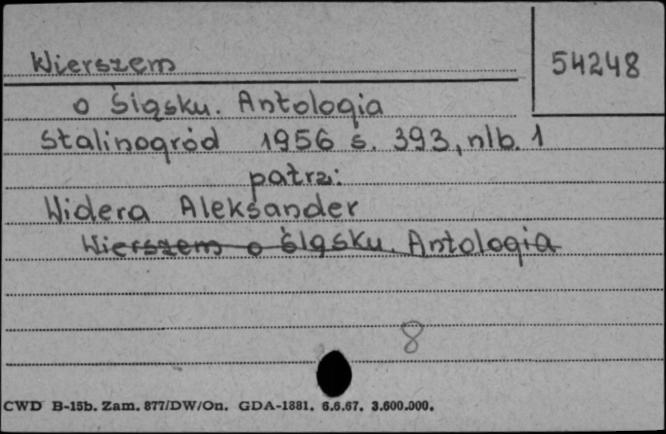 Wierszem
54248
o Śląsku. Antologia
Stalinogród 1956 s. 393, nlb. 1
patrz:
Widera Aleksander
Wierszem o Śląsku. Antologia
8
CWD B-15b. Zam. 877/DW/On. GDA-1881. 6.6.67. 3.600.000.